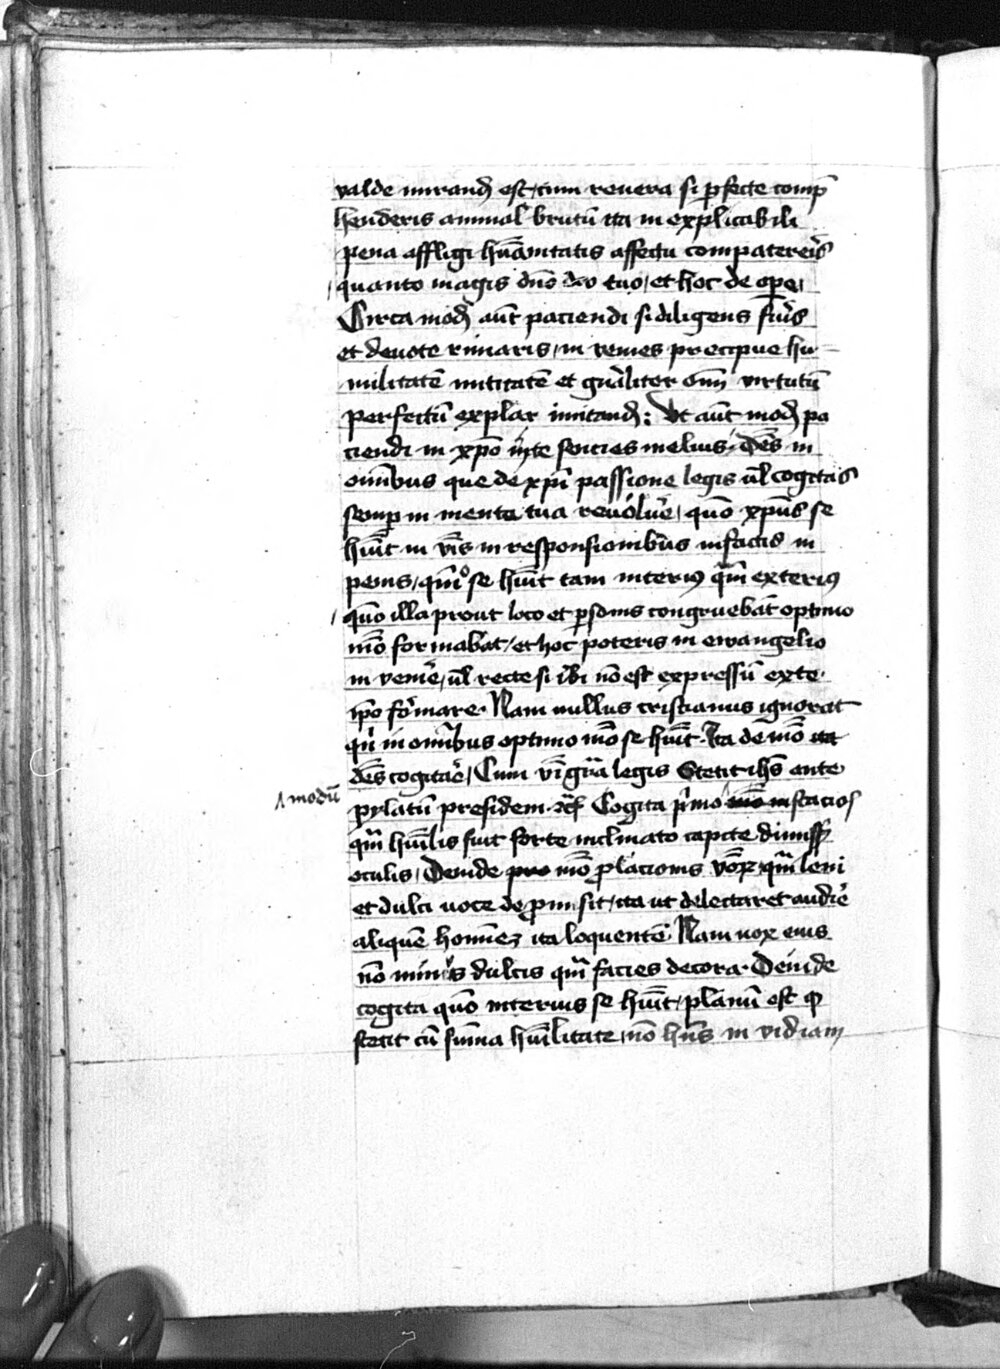 valde mirand est, cum revera si perfecte comp
henderis animal brutū ita in explicabili
pena affligi hūanitatis affectu compatereris
quanto magis dno deo tuo, et hoc de ope,
Circa mod aūt paciendi si diligens fuis
et devote rimaris, in venies precipue hu-
militatē mititatē et gnaliter omīm virtutū
perfectū explar imitand: Ut aūt mod pa
ciendi in xpo iste sencies melius, Des in
omnibus que de xpi passione legis ul cogitas
semp in mente tua revolue, quo xpūs se
huit in vis in responsionibus in factis in
penis, quo se huit tam interius qm exterius
quo illa prout loco et psonis congruebat optimo
mō formabat, et hoc poteris in ewangelio
in venire, ul recte si ibi no est expressū exte
ipo formare. Nam nullus cristianus ignorat
qn in omibus optimo mō se huit. Ita de mō ita
des cogitare, Cum vī gra legis Stetit ihs ante
pylatū presidem. rc Cogita pmo mō in stacios
⁁ modū
qm huilis fuit forte inclinato capite dimiss
oculis, Deinde pro mō placionis vōr, qm leni
et dulci voce depmsit, ita ut delectaret audire
aliquē homiez ita loquentē Nam vox eius
no minus dulcis qm facies decora. Deinde
cogita quo interius se huit, planū est q
stetit cū sūma huilitate, no hns in vidiam